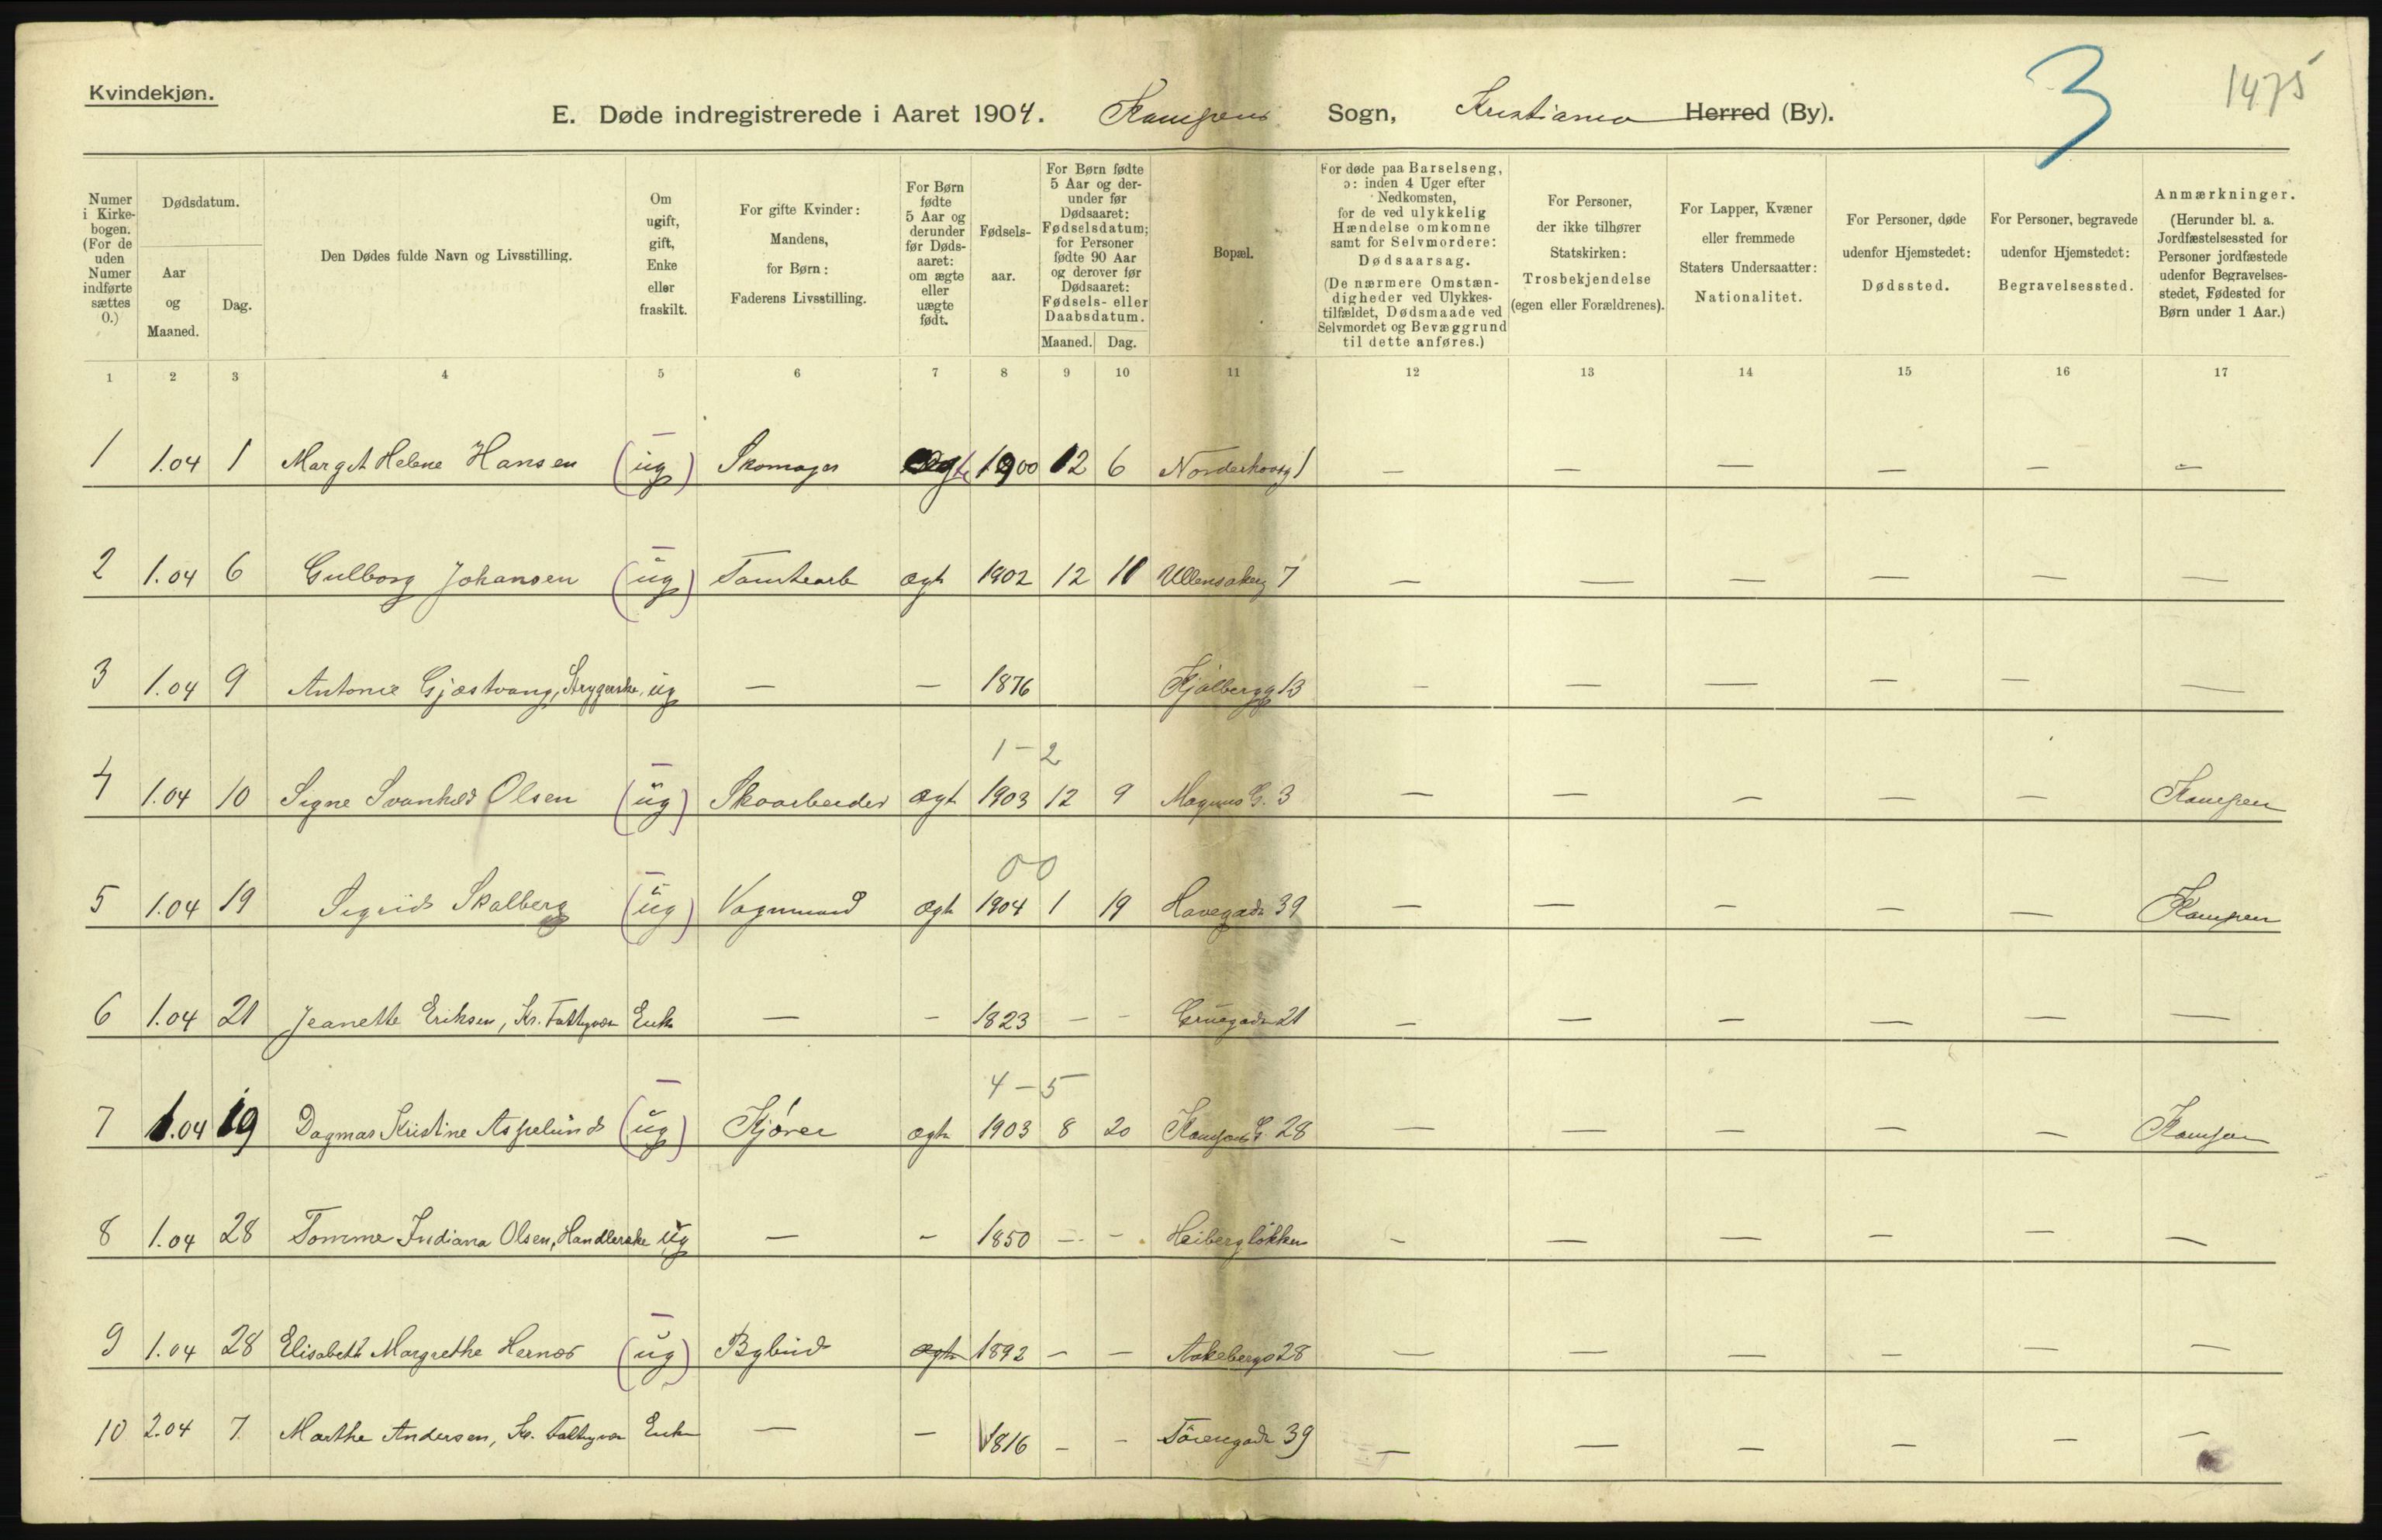 Kvindekjøn.
3
1475
E. Døde indregistrerede i Aaret 1904. Kampens Sogn, Kristiania Herred (By).
Numer i Kirkebogen. (For de uden Numer indførte sættes 0.)
Dødsdatum.
Aar og Maaned.
Dag.
Den Dødes fulde Navn og Livsstilling.
Om ugift, gift, Enke eller fraskilt.
For gifte Kvinder: Mandens, for Børn: Faderens Livsstilling.
For Børn fødte 5 Aar og derunder før Dødsaaret: om ægte eller uægte født.
Fødselsaar.
For Børn fødte 5 Aar og derunder før Dødsaaret: Fødselsdatum; for Personer fødte 90 Aar og derover før Dødsaaret: Fødsels- eller Daabsdatum.
Maaned. Dag.
Bopæl.
For døde paa Barselseng, ɔ: inden 4 Uger efter Nedkomsten, for de ved ulykkelig Hændelse omkomne samt for Selvmordere: Dødsaarsag. (De nærmere Omstændigheder ved Ulykkestilfældet, Dødsmaade ved Selvmordet og Bevæggrund til dette anføres.)
For Personer, der ikke tilhører Statskirken: Trosbekjendelse (egen eller Forældrenes).
For Lapper, Kvæner eller fremmede Staters Undersaatter: Nationalitet.
For Personer, døde udenfor Hjemstedet: Dødssted.
For Personer, begravede udenfor Hjemstedet: Begravelsessted.
Anmærkninger. (Herunder bl. a. Jordfæstelsessted for Personer jordfæstede udenfor Begravelsesstedet, Fødested for Børn under 1 Aar.)
1 2 3 4 5 6 7 8 9 10 11 12 13 14 15 16 17
1 1.04 1 Margit Helene Hansen (ug) Skomager ægte 1900 12 6 Norderhovsg 1 — — — — — —
2 1.04 6 Gulborg Johansen (ug) Tomtearb ægt 1902 12 11 Ullensakerg 7 — — — — — —
3 1.04 9 Antonie Gjæstvang, Strygerske ug — — 1876 Kjølbergg 13 — — — — — —
1 — 2
4 1.04 10 Signe Svanhild Olsen (ug) Skoarbeider ægt 1903 12 9 Magnus G. 3 — — — — — Kampen
0 0
5 1.04 19 Sigrid Skalberg (ug) Vognmand ægte 1904 1 19 Havegade 39 — — — — — Kampen
6 1.04 21 Jeanette Eriksen, Kr. Fattigvæsen Enke — — 1823 — — Gruegade 21 — — — — — —
4 — 5
7 1.04 19 Dagmar Kristine Aspelund (ug) Kjører ægte 1903 8 20 Kampens G. 28 — — — — — Kampen
8 1.04 28 Tomme Indiana Olsen, Handlerske ug — — 1850 — — Heibergløkken — — — — — —
9 1.04 28 Elisabeth Margrethe Hernæs (ug) Bybud ægte 1892 — — Aakebergv 28 — — — — — —
10 2.04 7. Marthe Andersen, Kr. Fattigvæs Enke — — 1816 — — Tøiengade 39 — — — — — —